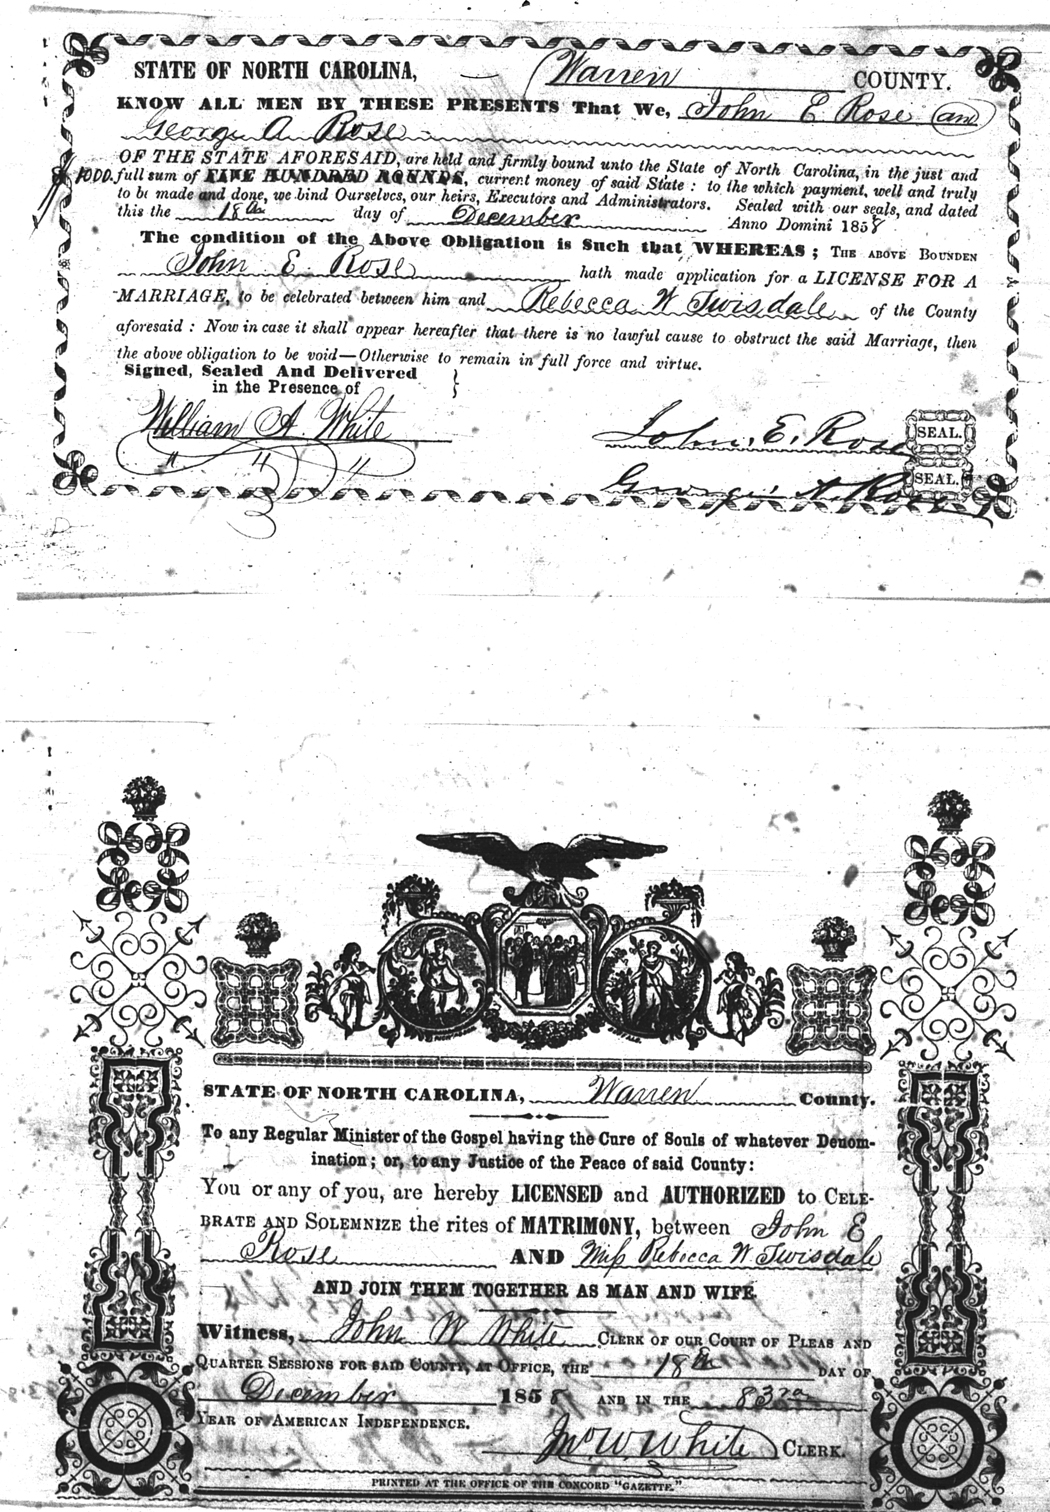 STATE OF NORTH CAROLINA, Warren COUNTY.
KNOW ALL MEN BY THESE PRESENTS That We, John E Rose and
George A Rose
OF THE STATE AFORESAID, are held and firmly bound unto the State of North Carolina, in the just and
$1000. full sum of FIVE HUNDRED POUNDS, current money of said State: to the which payment, well and truly
to be made and done, we bind Ourselves, our heirs, Executors and Administrators. Sealed with our seals, and dated
this the 18th day of December Anno Domini 1858
The condition of the Above Obligation is Such that WHEREAS; THE ABOVE BOUNDEN
John E. Rose hath made application for a LICENSE FOR A
MARRIAGE, to be celebrated between him and Rebecca W Twisdale of the County
aforesaid: Now in case it shall appear hereafter that there is no lawful cause to obstruct the said Marriage, then
the above obligation to be void—Otherwise to remain in full force and virtue.
Signed, Sealed And Delivered
in the Presence of
William A. White
John. E. Rose SEAL.
George A. Rose SEAL.
STATE OF NORTH CAROLINA, Warren County.
To any Regular Minister of the Gospel having the Cure of Souls of whatever Denom-
ination; or, to any Justice of the Peace of said County:
You or any of you, are hereby LICENSED and AUTHORIZED to CELE-
BRATE AND SOLEMNIZE the rites of MATRIMONY, between John E
Rose AND Miss Rebecca W Twisdale
AND JOIN THEM TOGETHER AS MAN AND WIFE.
Witness, John W White CLERK OF OUR COURT OF PLEAS AND
QUARTER SESSIONS FOR SAID COUNTY, AT OFFICE, THE 18th DAY OF
December 1858 AND IN THE 83rd
YEAR OF AMERICAN INDEPENDENCE.
Jno W White CLERK.
PRINTED AT THE OFFICE OF THE CONCORD "GAZETTE."